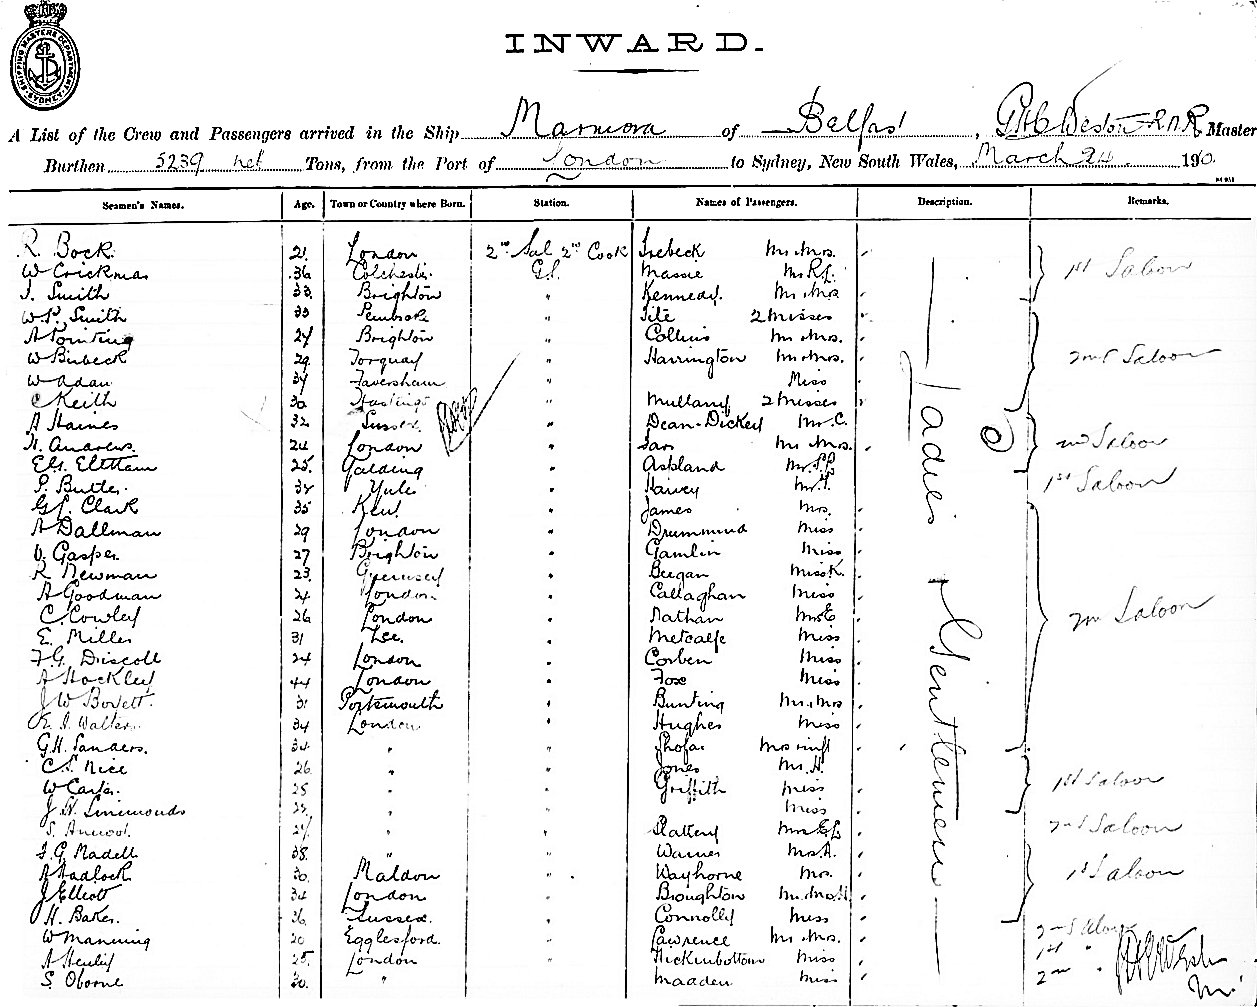 SHIPPING MASTERS DEPARTMENT SYDNEY
INWARD.
A List of the Crew and Passengers arrived in the Ship Marmora of Belfast, G H C Weston R N R Master
Burthen 5239 net Tons, from the Port of London to Sydney, New South Wales, March 24 1910.
Seamen's Names. Age. Town or Country where Born. Station. Names of Passengers. Description. Remarks.
R. Bock. 21. London 2nd Sal 2nd Cook Mr. Mrs.
W Crickmar 36 Colchester. G.S. Massie 1st Saloon
J. Smith 33. Brighton " Kennedy. Mr. Mrs
W.P. Smith 33 Pembroke " Tile 2 Misses
A Pointing 24 Brighton " Collins Mr. Mrs.
W Birbeck 29. Torquay " Harrington Mr. Mrs. 2nd Saloon
W Adan 34 Faversham " Miss
C Keith 30. Hastings " Mullany 2 Misses
A Haines 32 Sussex. " Dean-Dickey Mr. C.
H. Andrews 24 London " Mr. Mrs. 2nd Saloon
E.G. Eltham 25. Yalding " Ashland Mr.
P. Butler. 34 Yule " Harvey Mr. 1st Saloon
Clark 35 Kent " James Mrs.
A Dallman 29 London " Drummond Miss
Gasper. 27 Brighton " Gamlin Miss
R Newman 23. Guernsey " Beegan Miss K.
A Goodman 24 London " Callaghan Miss
C. Cowley 26 London " Nathan Mrs E 2nd Saloon
E. Miller 31 Lee. " Metcalfe Miss
F.G. Driscoll 24 London " Corben Miss
A Stockley 44 London " Fox Miss
J W Bovett. 31 Portsmouth " Bunting Mr. Mrs
E. J. Walters. 34 London " Hughes Miss
G.H. Sanders. 34. " " Mrs
C.S. Rice 26. " " Jones Mr. H.
W Carter. 25 " " Griffith Miss 1st Saloon
J. H. Simmonds " " Miss
S. " " Slattery Mrs 2nd Saloon
J. G. Madell 38. " " Warner Mrs A.
A Hadlock 30. Maldon " Wayhorne Mrs. 1st Saloon
J Elliott 34 London " Broughton
H. Baker. 36 Sussex. " Connolly Miss
W Manning 20 Egglesford. " Lawrence Mr. Mrs. 2nd Saloon
A Henley 25. London " Hickinbottom Miss 1st "
S. Oborne 30. " " Maaden Miss 2nd "
Ladies & Gentlemen